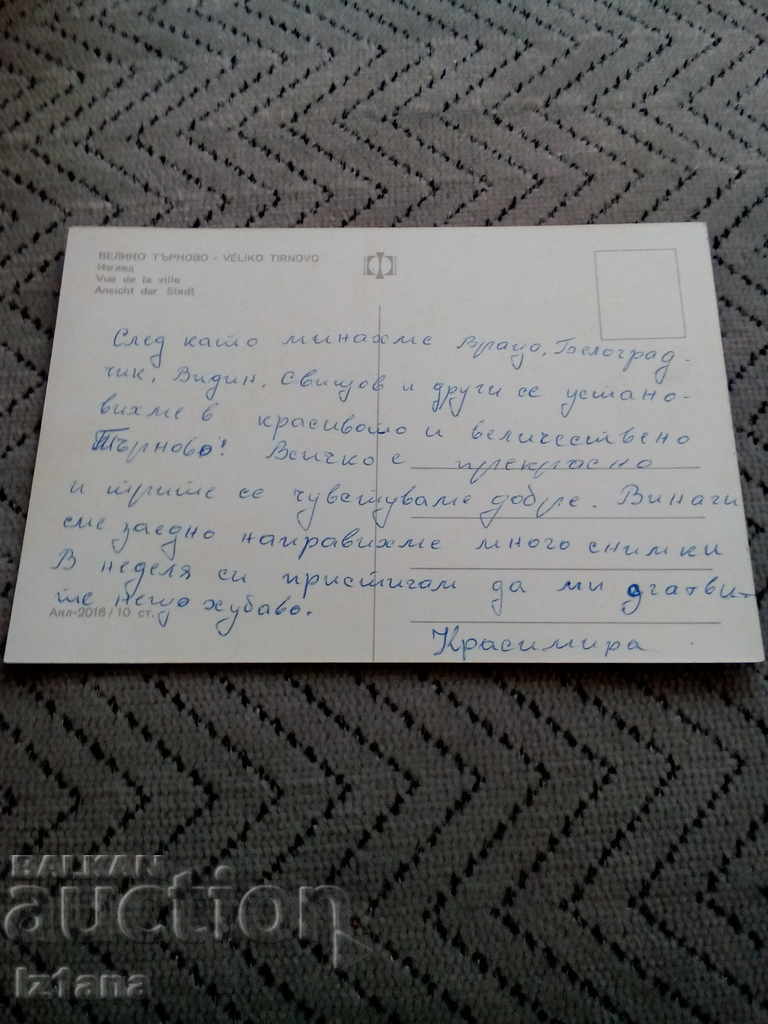 ВЕЛИКО ТЪРНОВО - VELIKO TIRNOVO
Изглед
Vue de la ville
Ansicht der Stadt
След като минахме Враца, Белоград-
чик, Видин, Свищов и други се устано-
вихме в красивото и величествено
Търново! Всичко е прекрасно
и трите се чувствуваме добре. Винаги
сме заедно направихме много снимки
В неделя си пристигам да ми сготви-
те нещо хубаво.
Акл-2016/10 ст.
Красимира
BALKAN
auction
Iz1ana